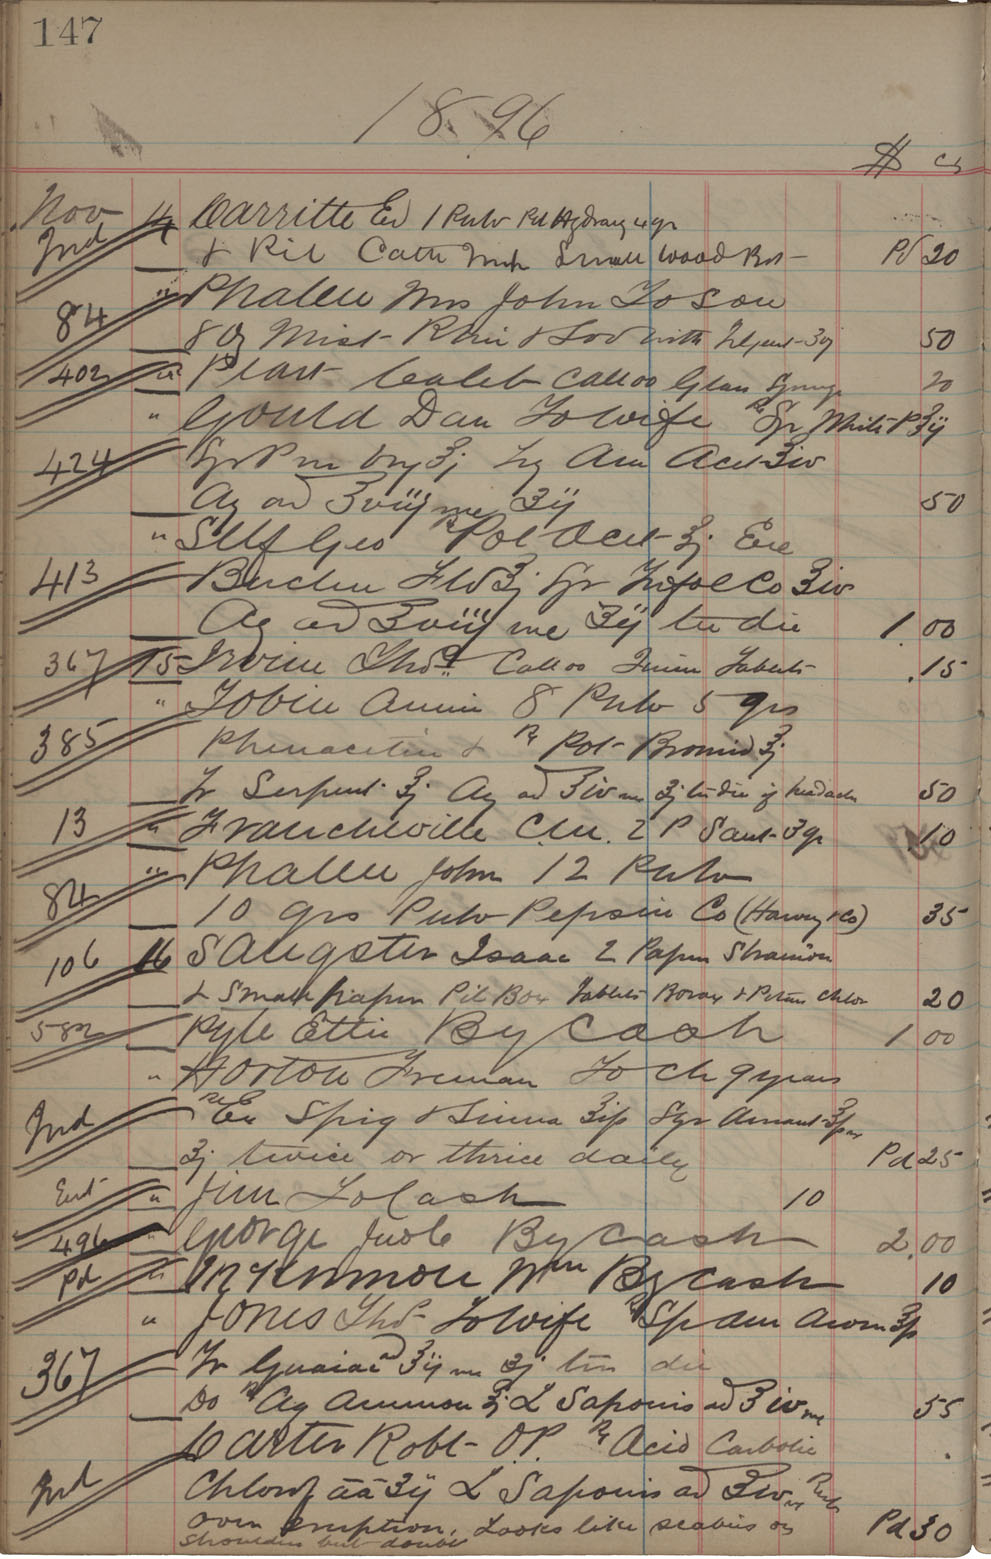 147
1896
$ cs
Nov 14 Carritte Ed 1 Pulv Pil Hydrarg 4 gr
Ind & Pil Cath Small wood Box Pd 20
" Phalen Mrs John To Son
84 8 oz Mist Rhei & Sod with 50
402 " Peart Caleb Call 00 Glass Syringe 20
" Gould Dan To wife Rx Syr White P ʒij
424 Syr Prun Virg ℥j Liq Am Acet ℥iv
Aq ad ℥viij me ʒij 50
" Self Geo Rx Pot Acet ℥j Ext
413 Buchu Fld ℥j Syr Trifol Co ℥iv
Aq ad ℥viij me ʒij ter die 1.00
367 15 Irvine Thos Call 00 Quin Tablets .15
" Tobin Annie 8 Pulv 5 grs
385 Phenacetin & Rx Pot Bromid ʒj
Tr Serpent ℥j Aq ad ℥iv me ʒj ter die if headache 50
13 " Francheville Cm. 2 P Sant 3 gr 10
" Phalen John 12 Pulv
84 10 grs Pulv Pepsin Co (Harvey & Co) 35
106 16 Sangster Isaac 2 Papers Stramon
& Small paper Pil Box Tablets Borax & Potass Chlor 20
582 Pyle Ettie By Cash 1 00
" Horton Freman To ch 9 years
Ind Rx Ex Spig & Sinna Syr
ʒj twice or thrice daily Pd 25
Ent " Jim To Cash 10
496 " George Jude By Cash 2.00
Pd " Wm By cash 10
" Jones Thos To wife Rx Sp Am Arom
367 Tr Guaiac ad ℥ij me ʒj ter die
Do Rx Aq Ammon ℥j L Saponis ad ℥iv me 55
Carter Robt O.P. Rx Acid Carbolic
Ind Chlorof āā ʒij L Saponis ad ℥iv me Rub
over eruption. Looks like scabies on Pd 30
shoulders but doubt